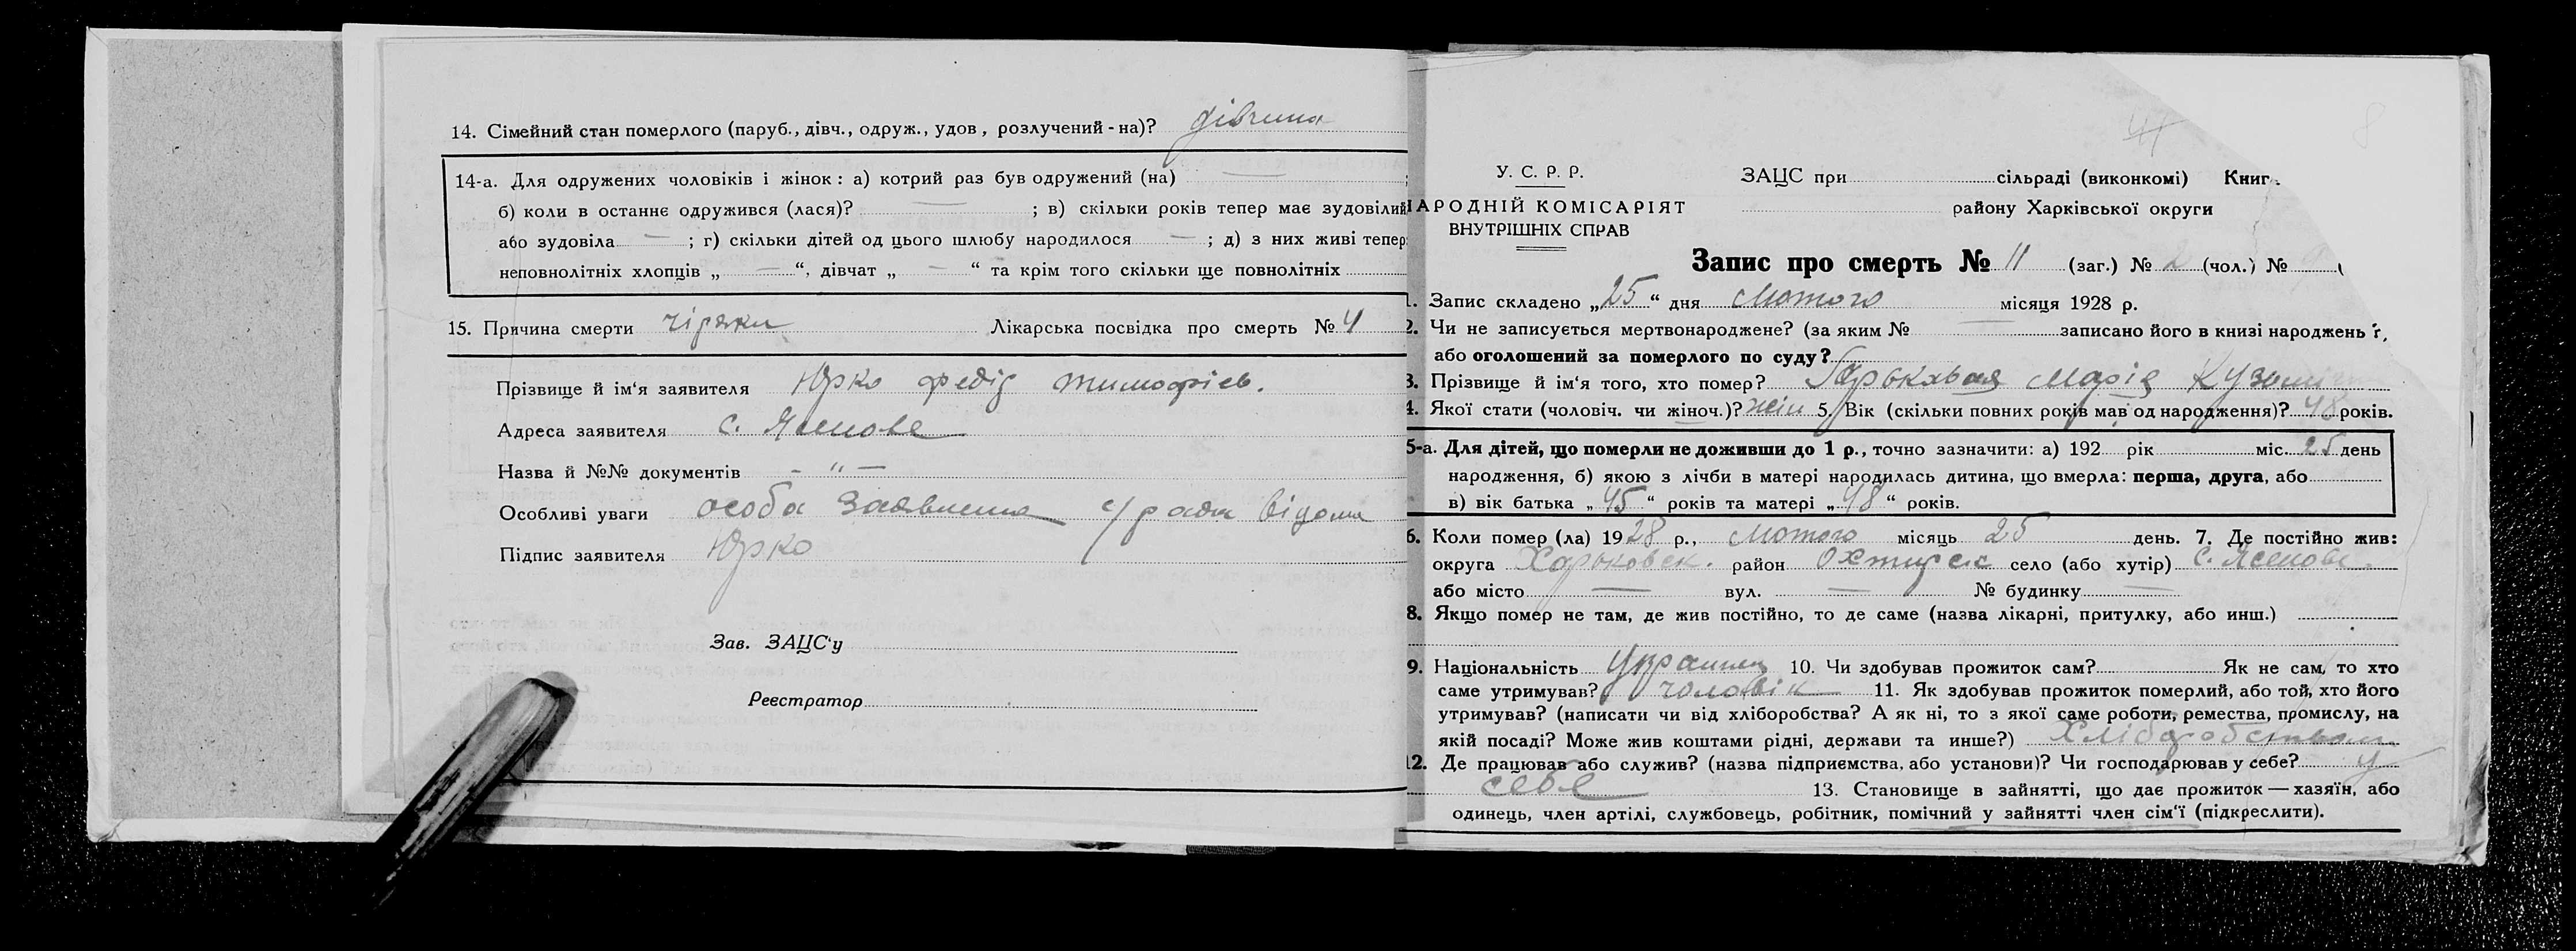 14. Сімейний стан померлого (паруб., дівч., одруж., удов, розлучений - на)? дівчина
14-а. Для одружених чоловіків і жінок: а) котрий раз був одружений (на) —
б) коли в останнє одружився (лася)? — ; в) скільки років тепер має зудовілий
або зудовіла — ; г) скільки дітей од цього шлюбу народилося — ; д) з них живі тепер:
неповнолітніх хлопців „ — “, дівчат „ — “ та крім того скільки ще повнолітніх
15. Причина смерти чіряки Лікарська посвідка про смерть № 4
Прізвище й ім‘я заявителя Юрко Федір Тимофіев.
Адреса заявителя с. Ясенове
Назва й №№ документів - " —
Особливі уваги особа заявителя с/раді відома
Підпис заявителя Юрко
Зав. ЗАЦС‘у
Реєстратор
У. С. Р. Р.
НАРОДНІЙ КОМІСАРІЯТ
ВНУТРІШНІХ СПРАВ
ЗАЦС при сільраді (виконкомі) Книг
району Харківської округи
8
Запис про смерть № 11 (заг.) № 2 (чол.) № 9
1. Запис складено „25“ дня Лютого місяця 1928 р.
2. Чи не записується мертвонароджене? (за яким № — записано його в книзі народжень
або оголошений за померлого по суду?
3. Прізвище й ім‘я того, хто помер? Марія
4. Якої стати (чоловіч. чи жіноч.)? жін 5. Вік (скільки повних років мав од народження)? 48 років.
5-а. Для дітей, що померли не доживши до 1 р., точно зазначити: а) 192 рік міс. 25 день
народження, б) якою з лічби в матері народилась дитина, що вмерла: перша, друга, або
в) вік батька „45“ років та матері „48“ років.
6. Коли помер (ла) 1928 р., Лютого місяць 25 день. 7. Де постійно жив:
округа Харьковск. район Охтирск село (або хутір) С. Ясенове
або місто — вул. — № будинку —
8. Якщо помер не там, де жив постійно, то де саме (назва лікарні, притулку, або инш.)
9. Національність 10. Чи здобував прожиток сам? Як не сам, то хто
саме утримував? чоловік 11. Як здобував прожиток померлий, або той, хто його
утримував? (написати чи від хліборобства? А як ні, то з якої саме роботи, ремества, промислу, на
якій посаді? Може жив коштами рідні, держави та инше?) Хліборобством
12. Де працював або служив? (назва підприємства, або установи)? Чи господарював у себе? у
себе 13. Становище в зайнятті, що дає прожиток — хазяїн, або
одинець, член артілі, службовець, робітник, помічний у зайнятті член сім‘ї (підкреслити).